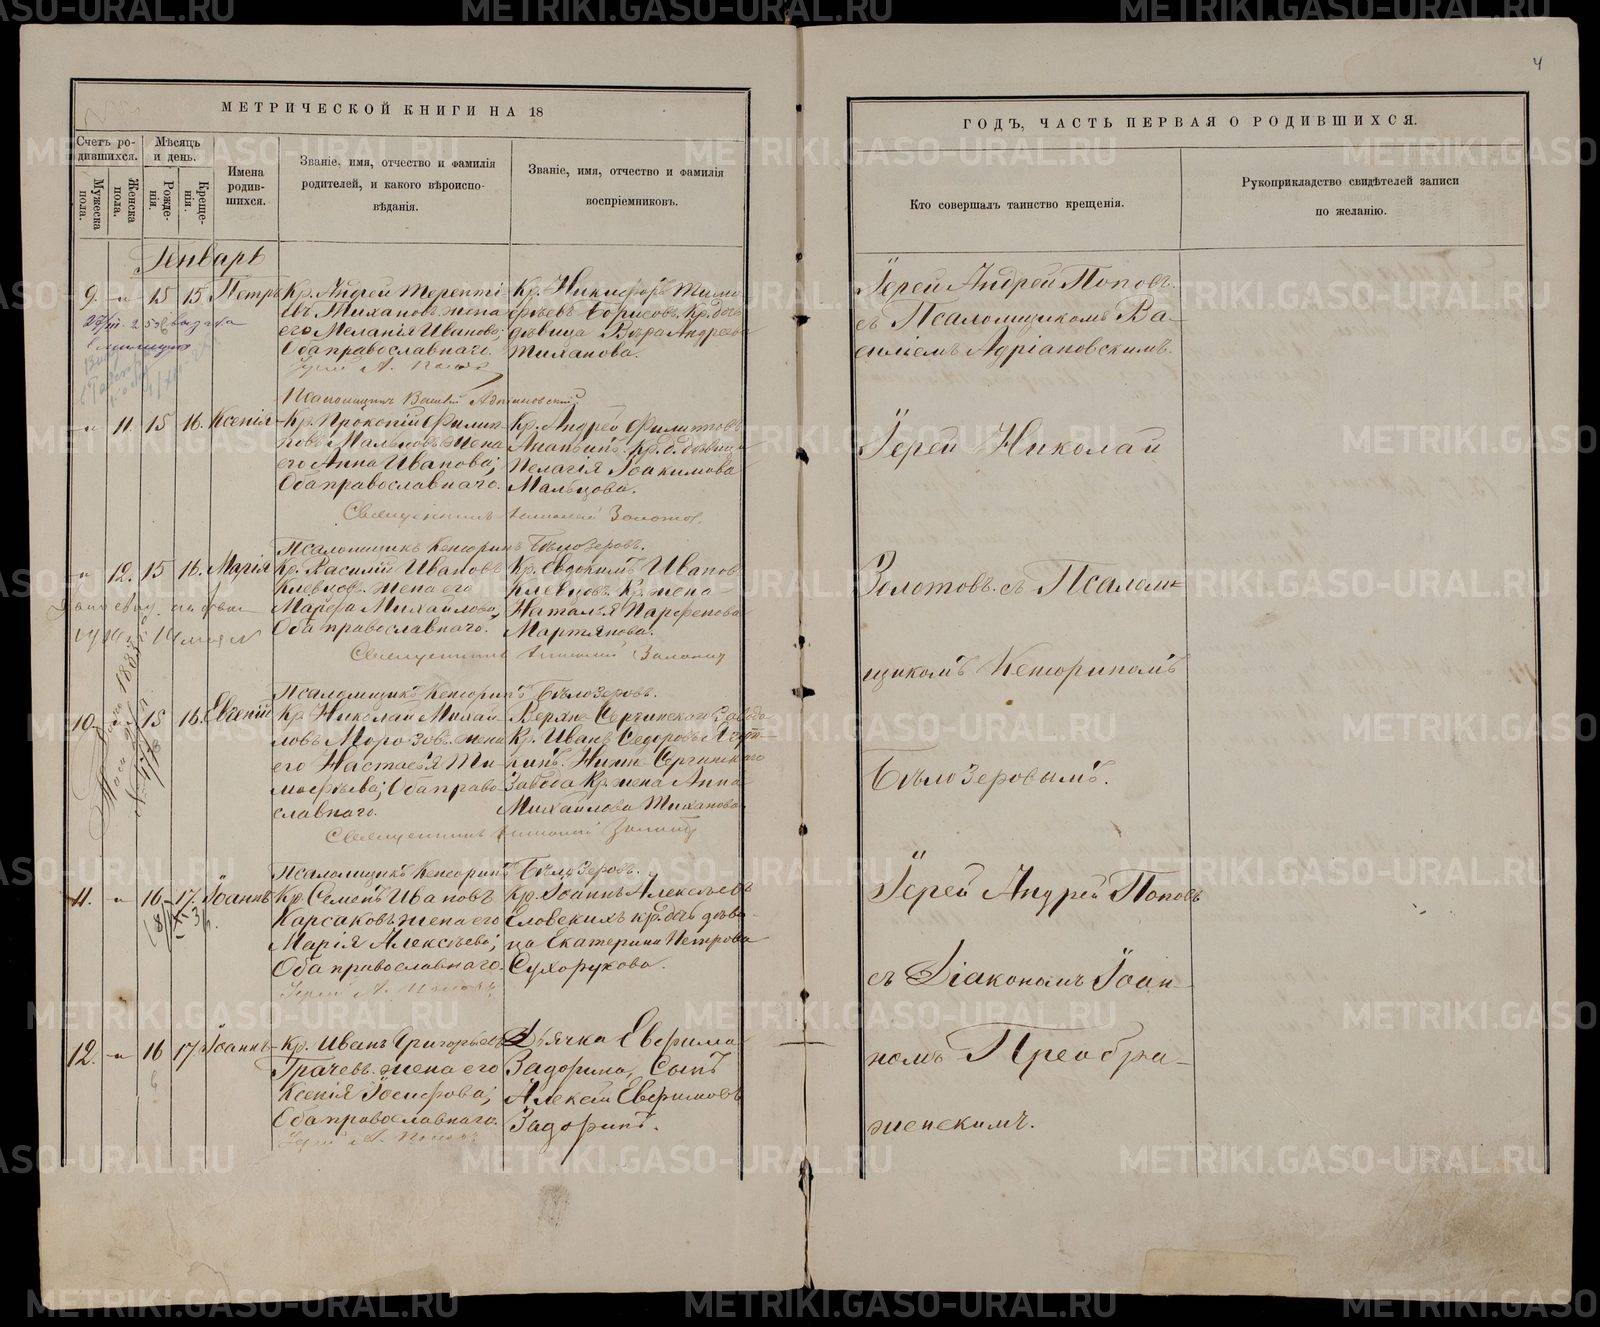 4
МЕТРИЧЕСКОЙ КНИГИ НА 18
ГОДЪ, ЧАСТЬ ПЕРВАЯ О РОДИВШИХСЯ.
Счетъ ро-
дившихся.
Мужеска
пола.
Женска
пола.
Мѣсяцъ
и день.
Рожде-
нія.
Креще-
нія.
Имена
родив-
шихся.
Званіе, имя, отчество и фамилія
родителей, и какого вѣроиспо-
вѣданія.
Званіе, имя, отчество и фамилія
воспріемниковъ.
Кто совершалъ таинство крещенія.
Рукоприкладство свидѣтелей записи
по желанію.
Генварь
9. „ 15 15 Петръ
Кр. Андрей Теренті-
евъ Тихановъ жена
его Меланія Иванова;
Оба православнаго.
Кр. Никифоръ Тимо-
феевъ Борисовъ. Кр. дочь
дѣвица Вѣра Андреева
Тиханова.
Іерей Андрей Поповъ
съ Псаломщикомъ Ва-
силіемъ Адріановскимъ.
Іерей А. Поповъ
Псаломщикъ Василій Адріановскій
„ 11. 15 16. Ксенія
Кр. Прокопій Филип-
повъ Мальцовъ жена
его Анна Иванова;
Оба православнаго.
Кр. Андрей Филитовъ
Ананьинъ. Кр. д. дѣвица
Пелагія Іоакимова
Мальцова.
Іерей Николай
Священникъ Николай Золотов
Псаломщикъ Кенсоринъ Бѣлозеровъ.
„ 12. 15 16. Марія
Кр. Василій Ивановъ
Клевцовъ жена его
Марфа Михайлова;
Оба православнаго.
Кр. Евдокимъ Иванов
Клевцовъ. Кр. жена
Наталья Парфенова
Мартянова.
Золотовъ. съ Псалом-
щикомъ Кенсориномъ
Священникъ Николай Золотов
Псаломщикъ Кенсоринъ Бѣлозеровъ.
10. „ 15 16. Евгеній
Кр. Николай Михай-
ловъ Морозовъ. жена
его Настасья Ти-
мофѣева; Оба право-
славнаго.
Верхне Сергинскаго Завода
Кр. Иванъ Седоровъ
Нижне Сергинскаго
Завода Кр. жена Анна
Михайлова Тиханова
Бѣлозеровымъ.
Священникъ Николай Золотов
Псаломщикъ Кенсоринъ Бѣлозеровъ.
11. „ 16 17. Іоаннъ
Кр. Семенъ Ивановъ
Карсаковъ жена его
Марія Алексѣева;
Оба православнаго.
Кр. Іоаннъ Алексѣевъ
Еловскихъ кр. дочь дѣви-
ца Екатерина Петрова
Сухорукова.
Іерей Андрей Поповъ
съ Діакономъ Іоан-
Іерей А. Поповъ
12. „ 16 17. Іоаннъ
Кр. Иванъ Григорьевъ
Грачевъ. жена его
Ксенія Іосифова;
Оба православнаго.
Дьячка Евфима
Задорина, Сынъ
Алексѣй Евфимовъ
Задоринъ.
номъ Преобра-
женскимъ.
Іерей А. Поповъ